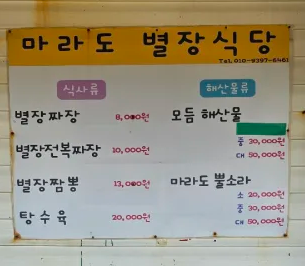 마라도 별장식당
Tel. 010-9297-5461
식사류
별장짜장 8,000원
별장전복짜장 10,000원
별장짬뽕 13,000원
탕수육 20,000원
해산물류
모듬 해산물
중 30,000원
대 50,000원
마라도 뿔소라
소 20,000원
중 30,000원
대 50,000원